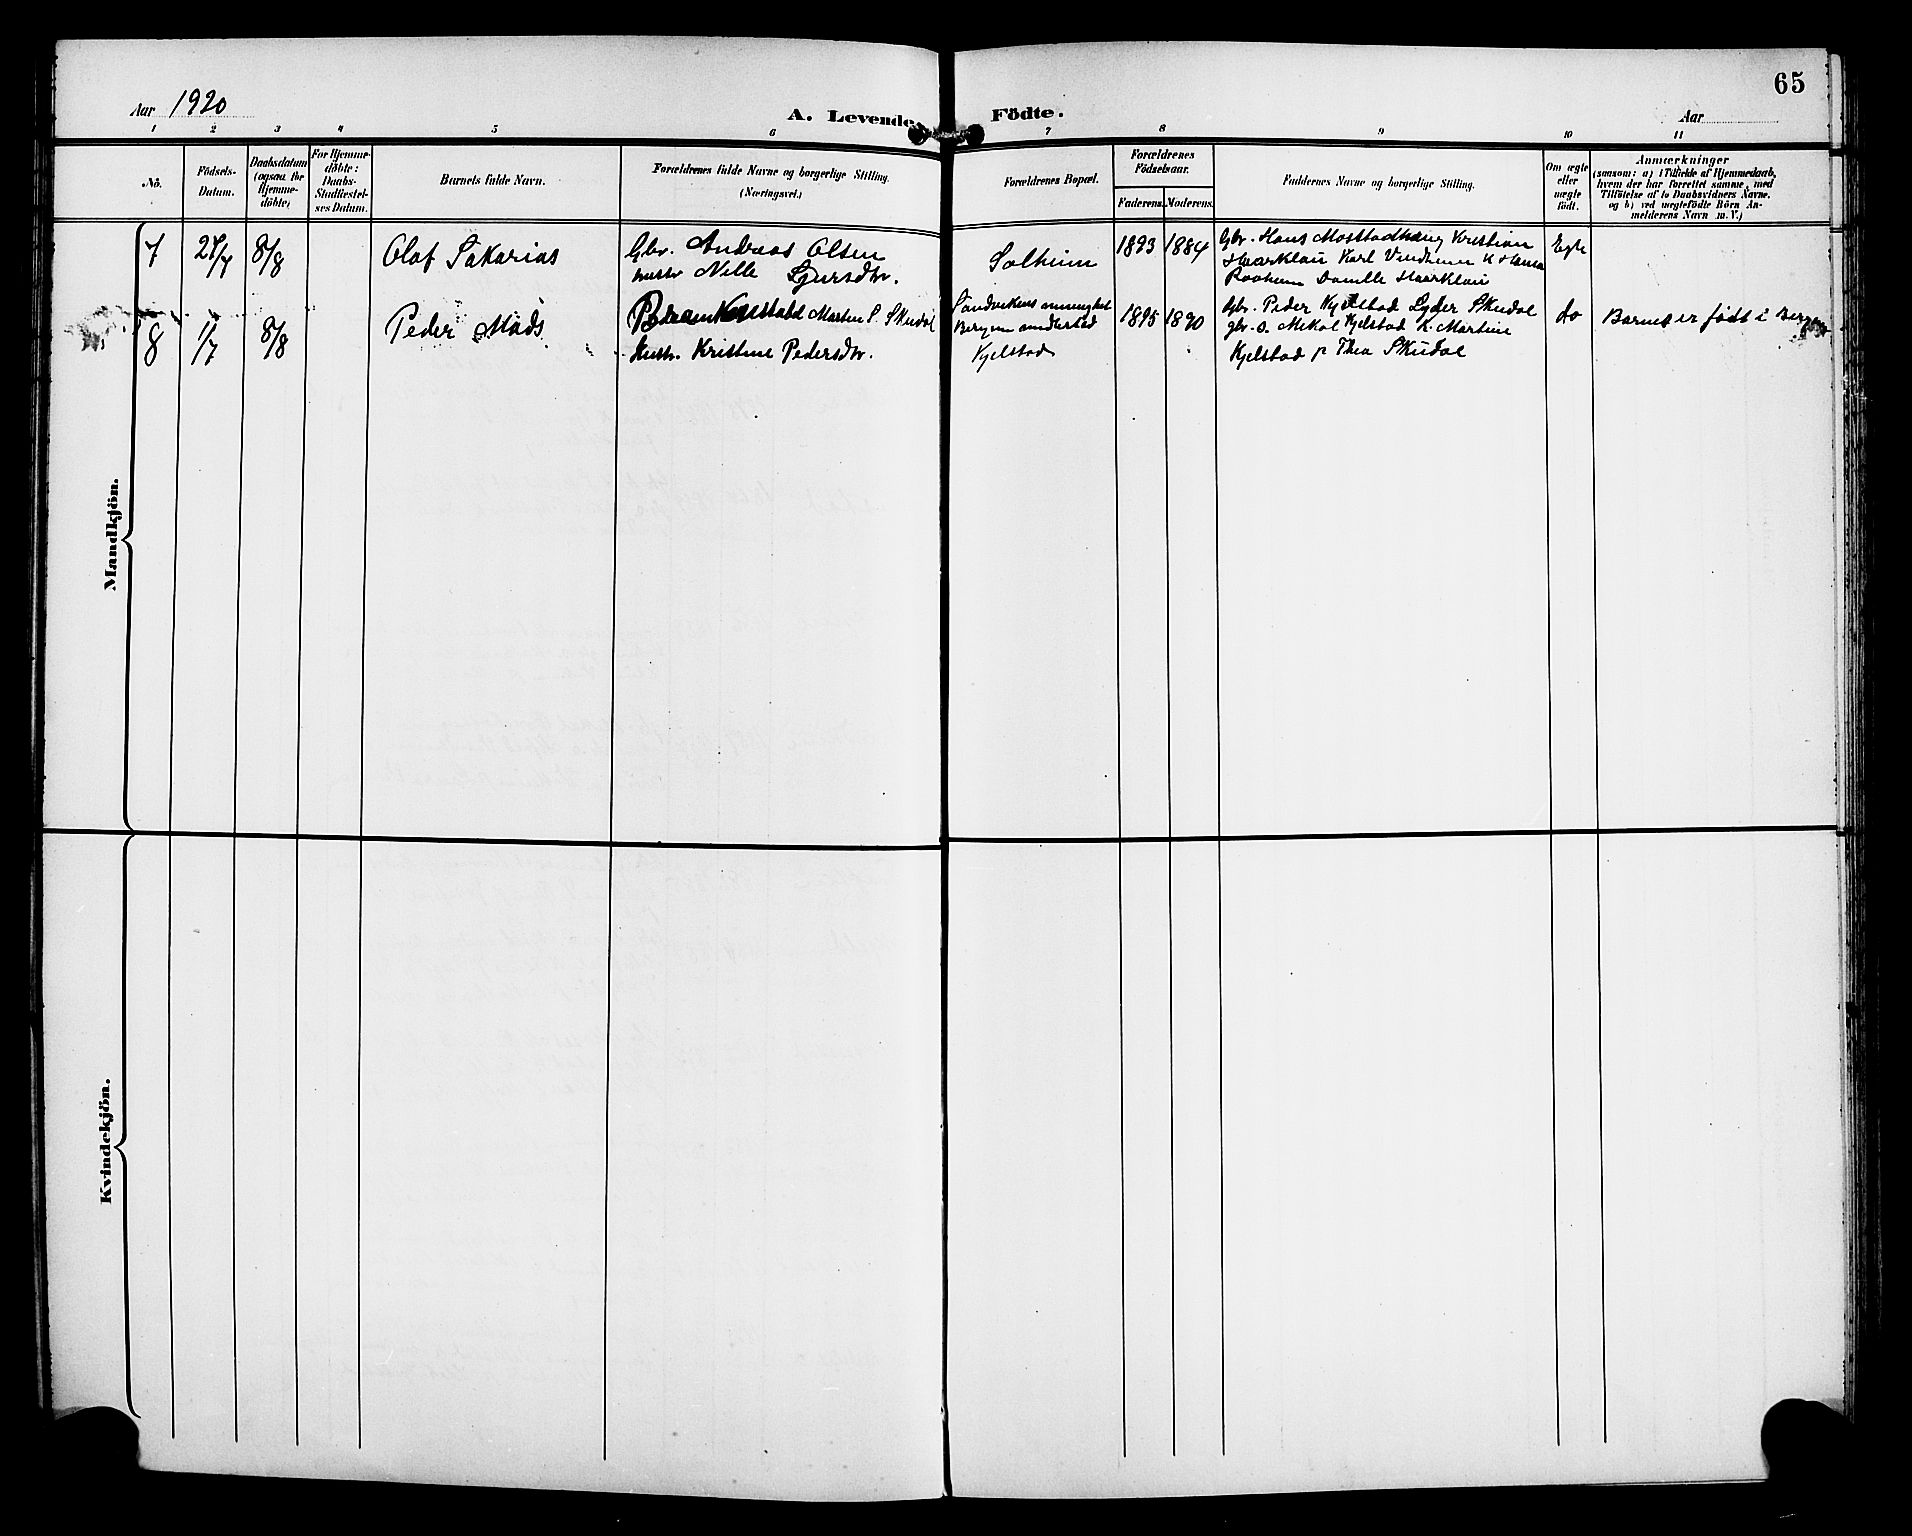 65
Aar 1920
A. Levende
Födte.
Aar
1 2 3 4 5 6 7 8 9 10 11
No.
Födsels-
Datum.
Daabsdatum
(ogsaa for
Hjemme-
döbte)
For Hjemme-
döbte:
Daabs-
Stadfæstel-
ses Datum.
Barnets fulde Navn.
Forældrenes fulde Navne og borgerlige Stilling.
(Næringsvei.)
Forældrenes Bopæl.
Forældrenes
Födselsaar.
Faderens. Moderens.
Faddernes Navne og borgerlige Stilling.
Om ægte
eller
uægte
født.
Anmærkninger
(saasom: a) i Tilfælde af Hjemmedaab,
hvem der har forrettet samme, med
Tilföielse af to Daabsvidners Navne.
og b) ved uægtefödte Börn An-
melderens Navn m. V.)
Mandkjön.
7
27/7
8/8
Olaf Sakarias
Gbr. Andreas Olsen
hustr Nille Sjursdtr.
Solheim
1893 1884
Gbr. Hans Mostadhaug Kristian
Haarklau Karl Vindheim K Hansa
Raaheim Damille Haarklau
Egte
8
1/7
8/8
Peder Mads
Marten S. Skudal
Hustr. Kristine Pedersdtr.
Sandvikens menighet
Bergen understad
Kjelstad
1895 1890
Gbr. Peder Kjelstad Lyder Skudal
gbr.s. Mikal Kjelstad K. Martine
Kjelstad p Thea Skudal
do
Barnet er født i Bergen
Kvindekjön.